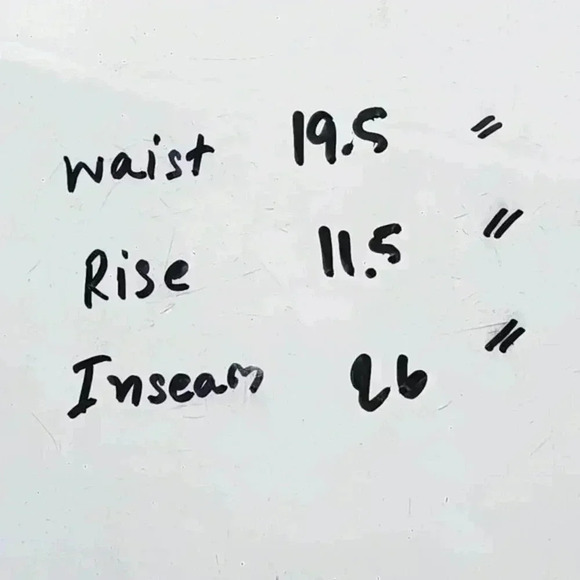 waist 19.5 "
Rise 11.5 "
Inseam 26 "